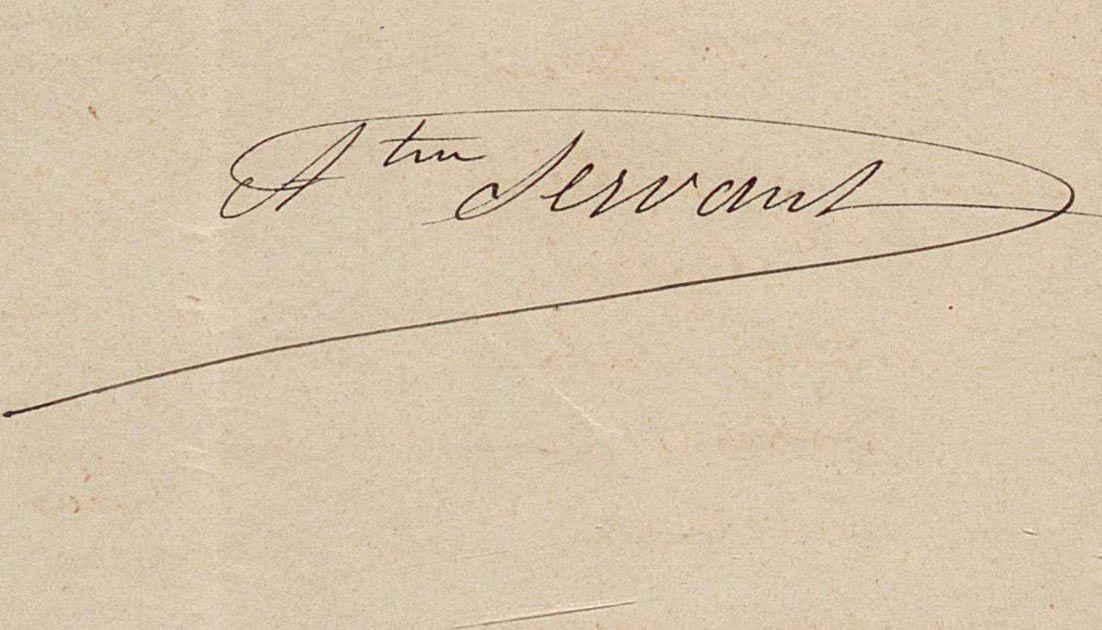 Atin Servant